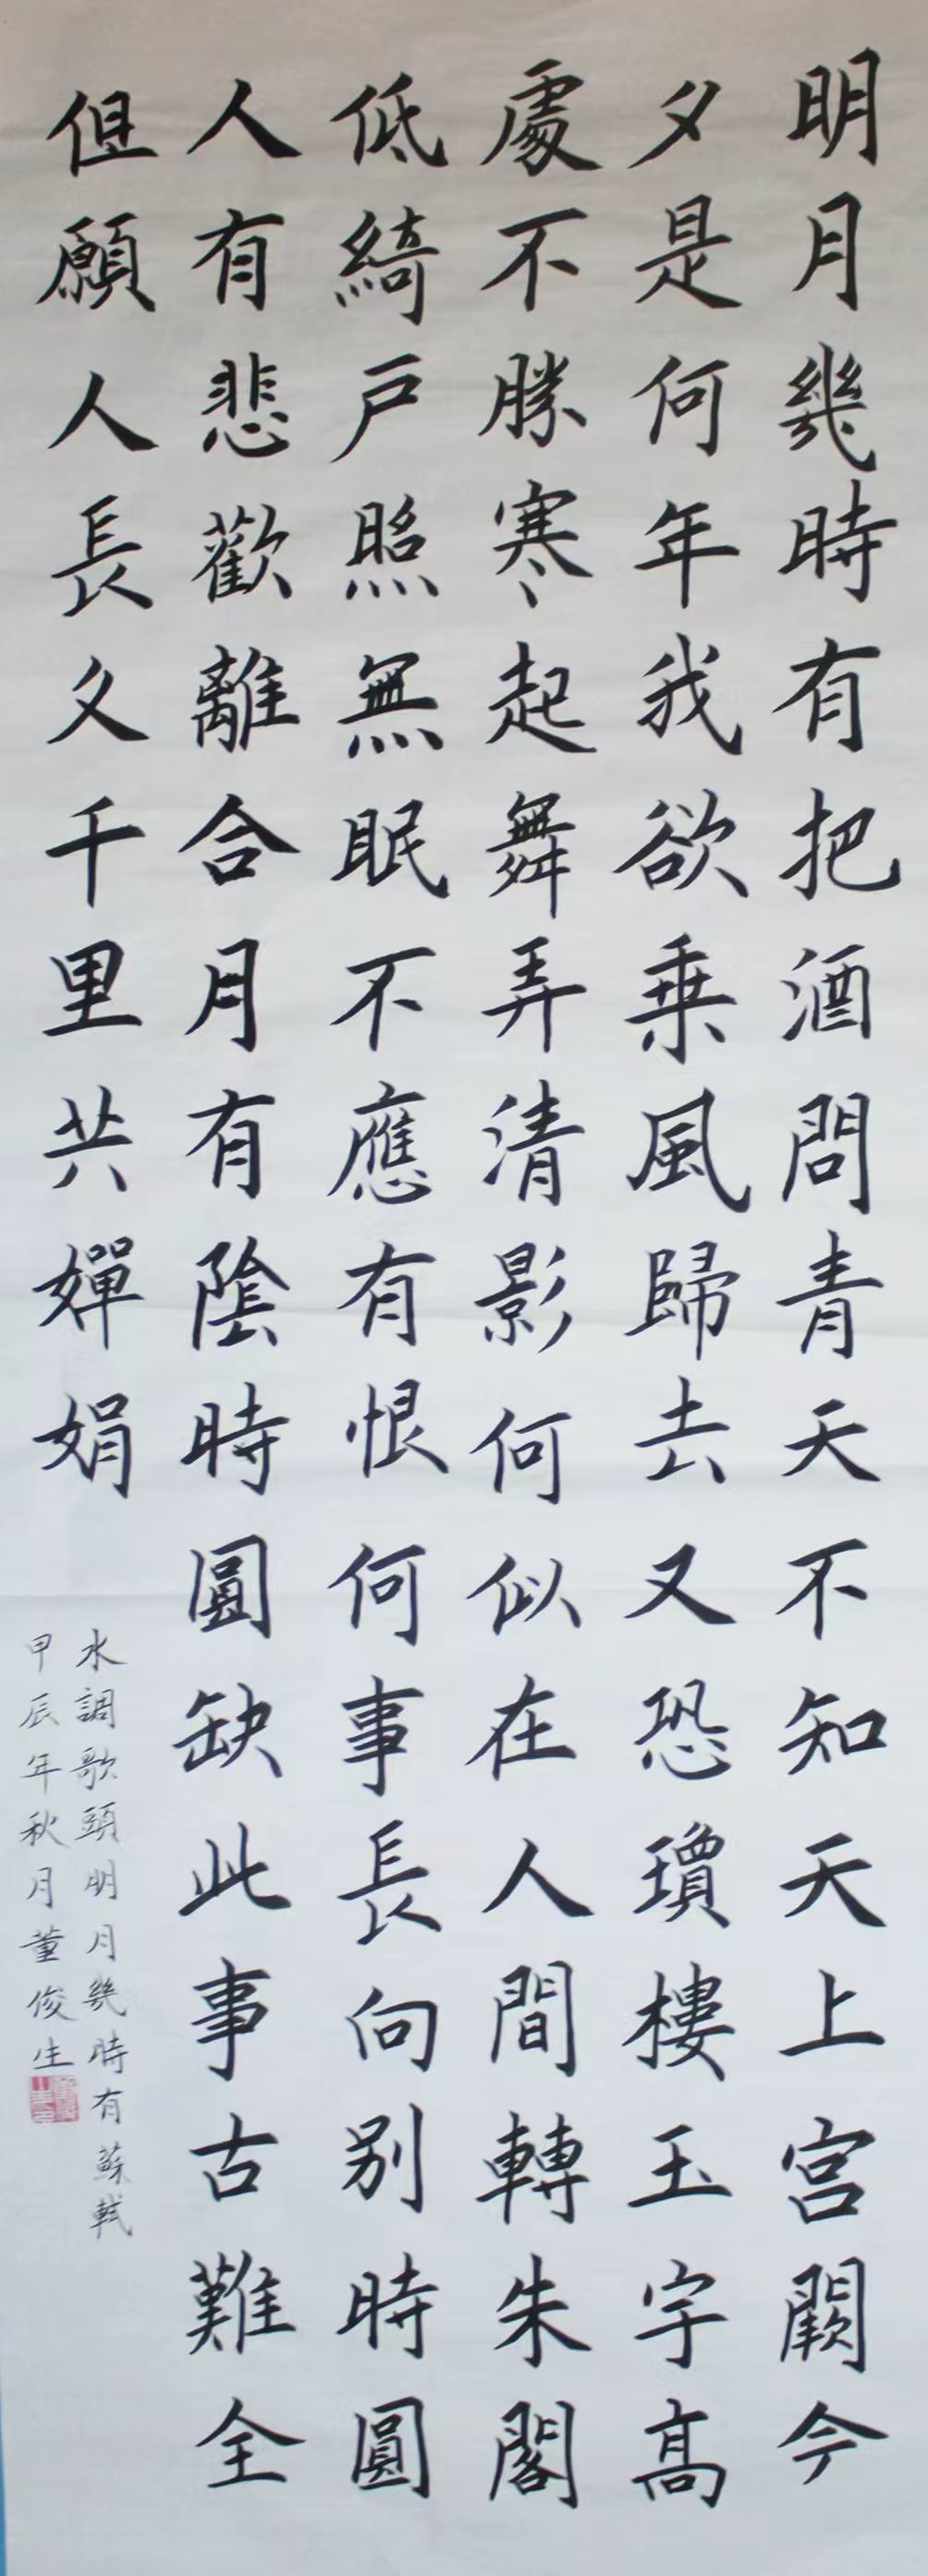 明月幾時有把酒問青天不知天上宫闕今
夕是何年我欲乗風歸去又恐瓊樓玉宇髙
處不勝寒起舞弄清影何似在人間轉朱閣
低綺戸照無眠不應有恨何事長向别時圓
人有悲歡離合月有陰時圓缺此事古難全
但願人長久千里共嬋娟
水調歌頭明月幾時有蘇軾
甲辰年秋月董俊生